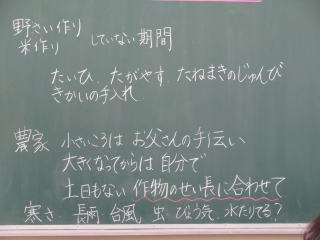 野さい作り
米作り　していない期間
たいひ．たがやす．たねまきのじゅんび
きかいの手入れ．
農家　小さいころは お父さんの手伝い
大きくなってからは 自分で
土日もない 作物のせい長に合わせて
寒さ．長雨 台風 虫 びょう気 水たりてる？